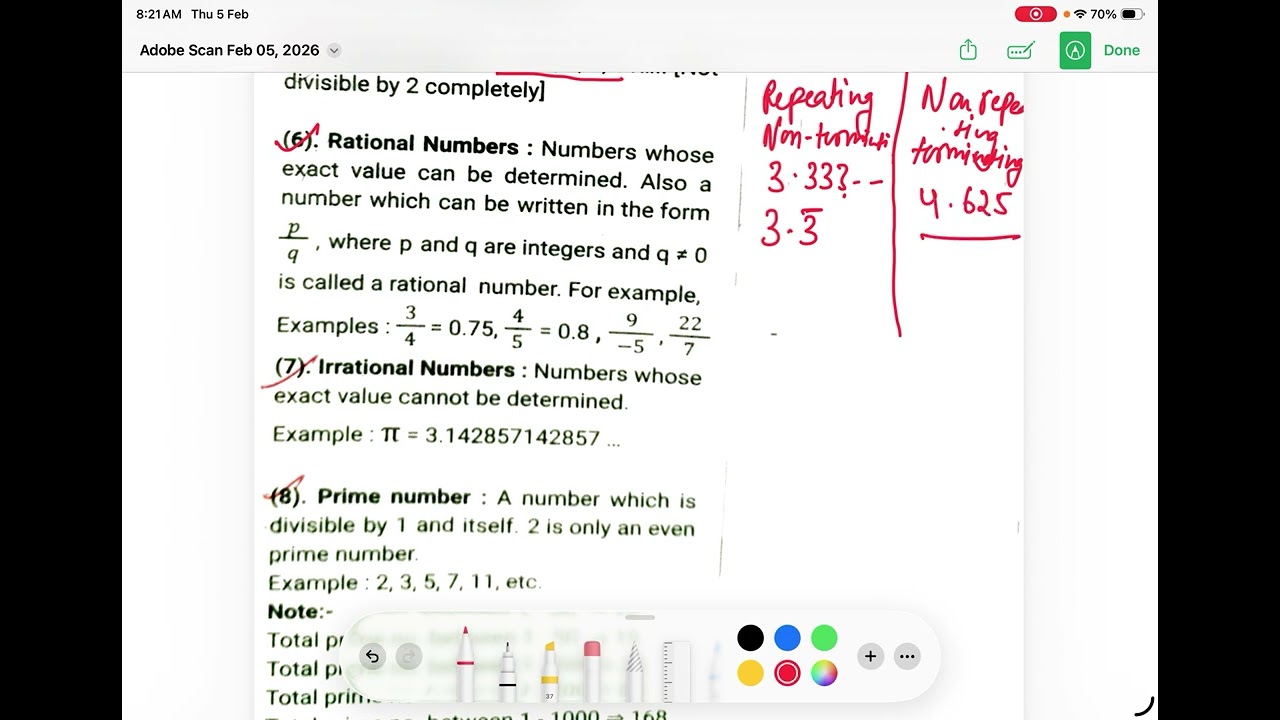 8:21 AM Thu 5 Feb
70%
Adobe Scan Feb 05, 2026
Done
divisible by 2 completely]
(6). Rational Numbers : Numbers whose
exact value can be determined. Also a
number which can be written in the form
p/q , where p and q are integers and q ≠ 0
is called a rational number. For example,
Examples : 3/4 = 0.75, 4/5 = 0.8 , 9/-5 , 22/7
(7). Irrational Numbers : Numbers whose
exact value cannot be determined.
Example : π = 3.142857142857 ...
(8). Prime number : A number which is
divisible by 1 and itself. 2 is only an even
prime number.
Example : 2, 3, 5, 7, 11, etc.
Note:-
Total
Total
Total
1 - 1000 ⇒ 168
Repeating
3.33
3.3̅
Non repea
ting
terminating
4.625
37